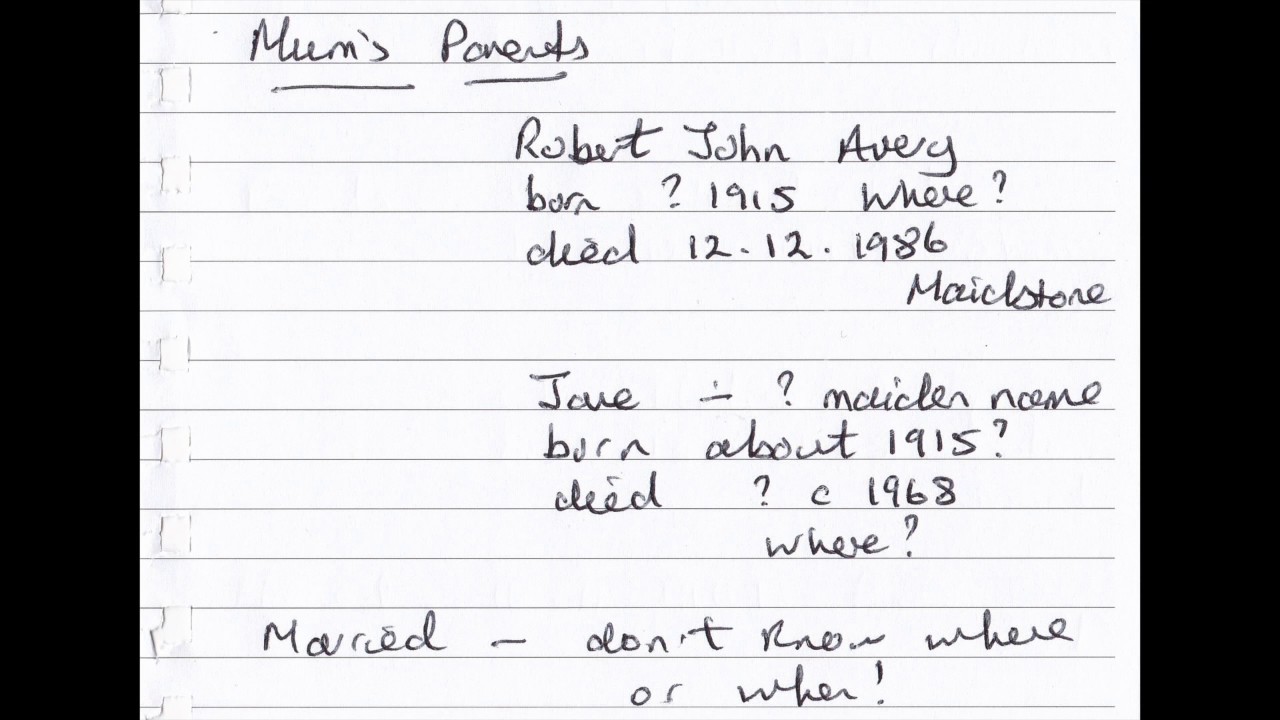 Mum's Parents
Robert John Avery
born ? 1915 where?
died 12.12.1986
Maidstone
Jane - ? maiden name
born about 1915?
died ? c 1968
where?
Married - don't know where
or when!